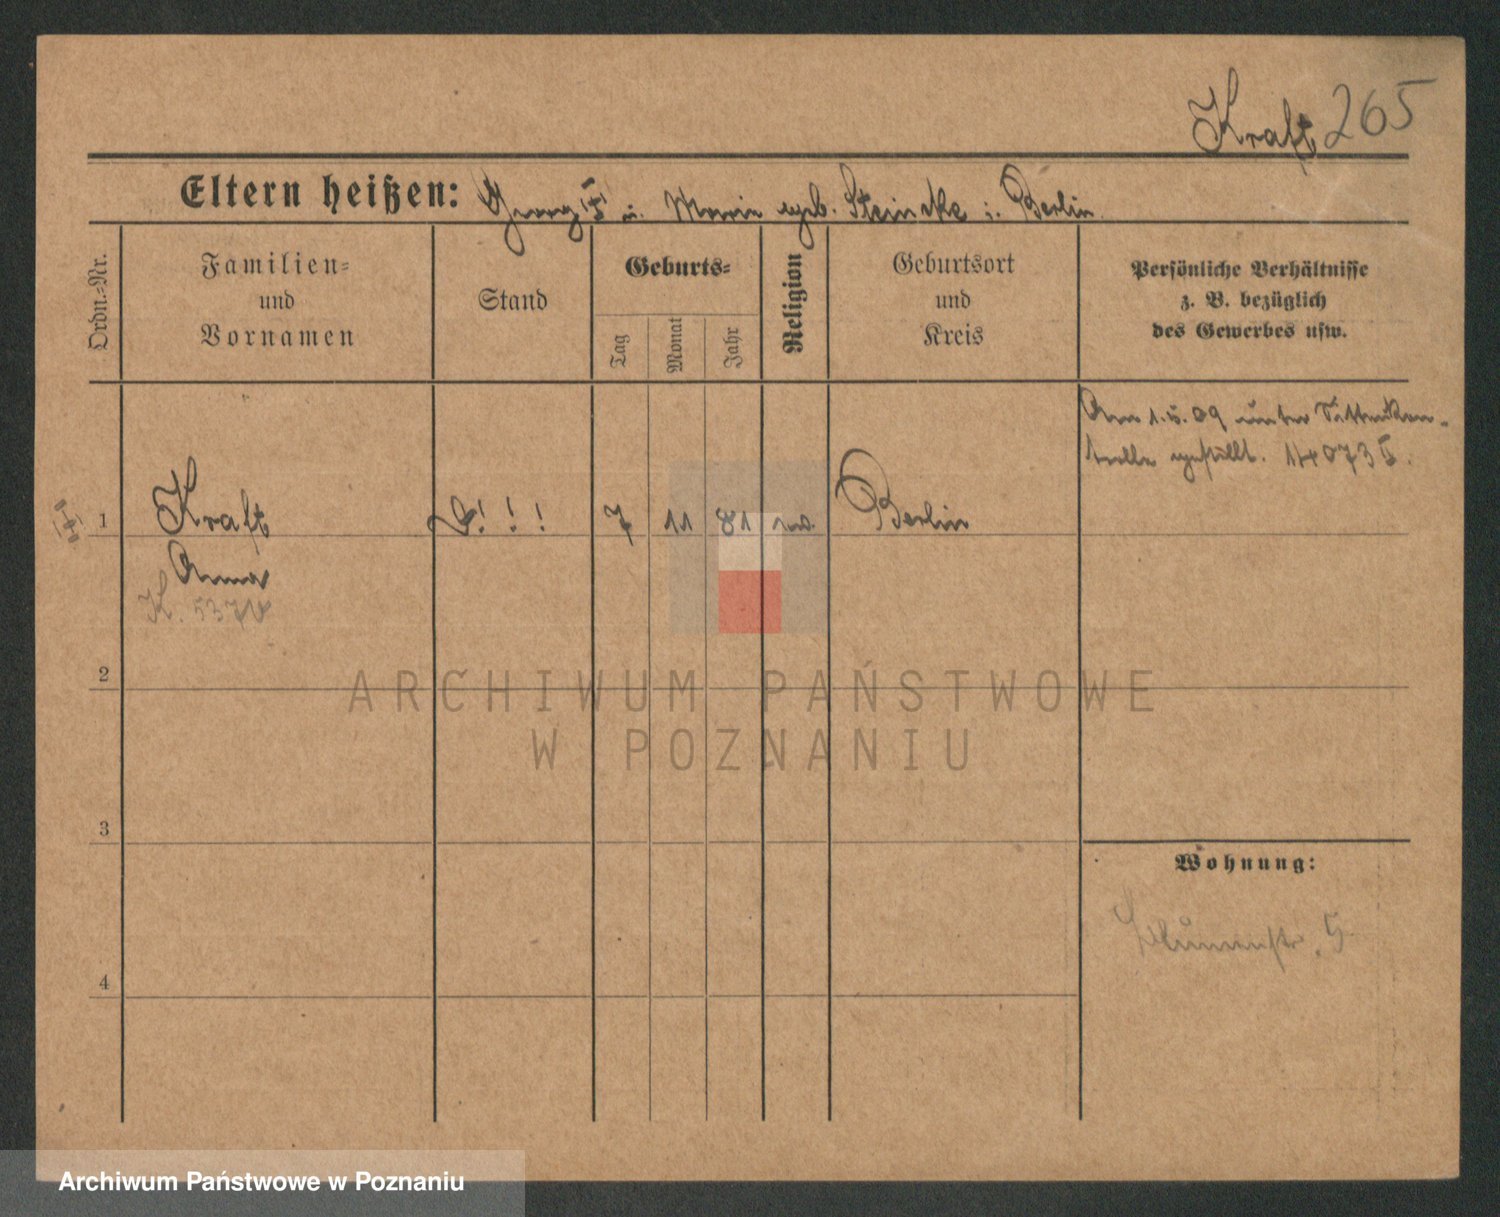 Kraft 265
Eltern heißen: Georg u. Marie geb. Steincke i. Berlin
Ordn.-Nr.
Familien-
und
Vornamen
Stand
Geburts-
Tag
Monat
Jahr
Religion
Geburtsort
und
Kreis
Persönliche Verhältnisse
z. B. bezüglich
des Gewerbes usw.
Am 1.5.09 unter Sittenkon-
trolle gestellt.
1 Kraft ! ! ! 7 11 81 Berlin
Anna
2
3
4
Wohnung:
Blumenstr. 5
ARCHIWUM PAŃSTWOWE
W POZNANIU
Archiwum Państwowe w Poznaniu